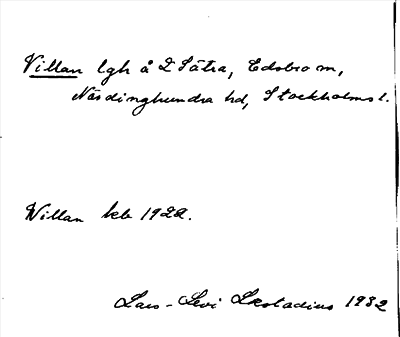 Villan lgh å Sätra, Edsbro sn,
Närdinghundra hd, Stockholms l.
Willan kb 1922.
Lars-Levi Læstadius 1932